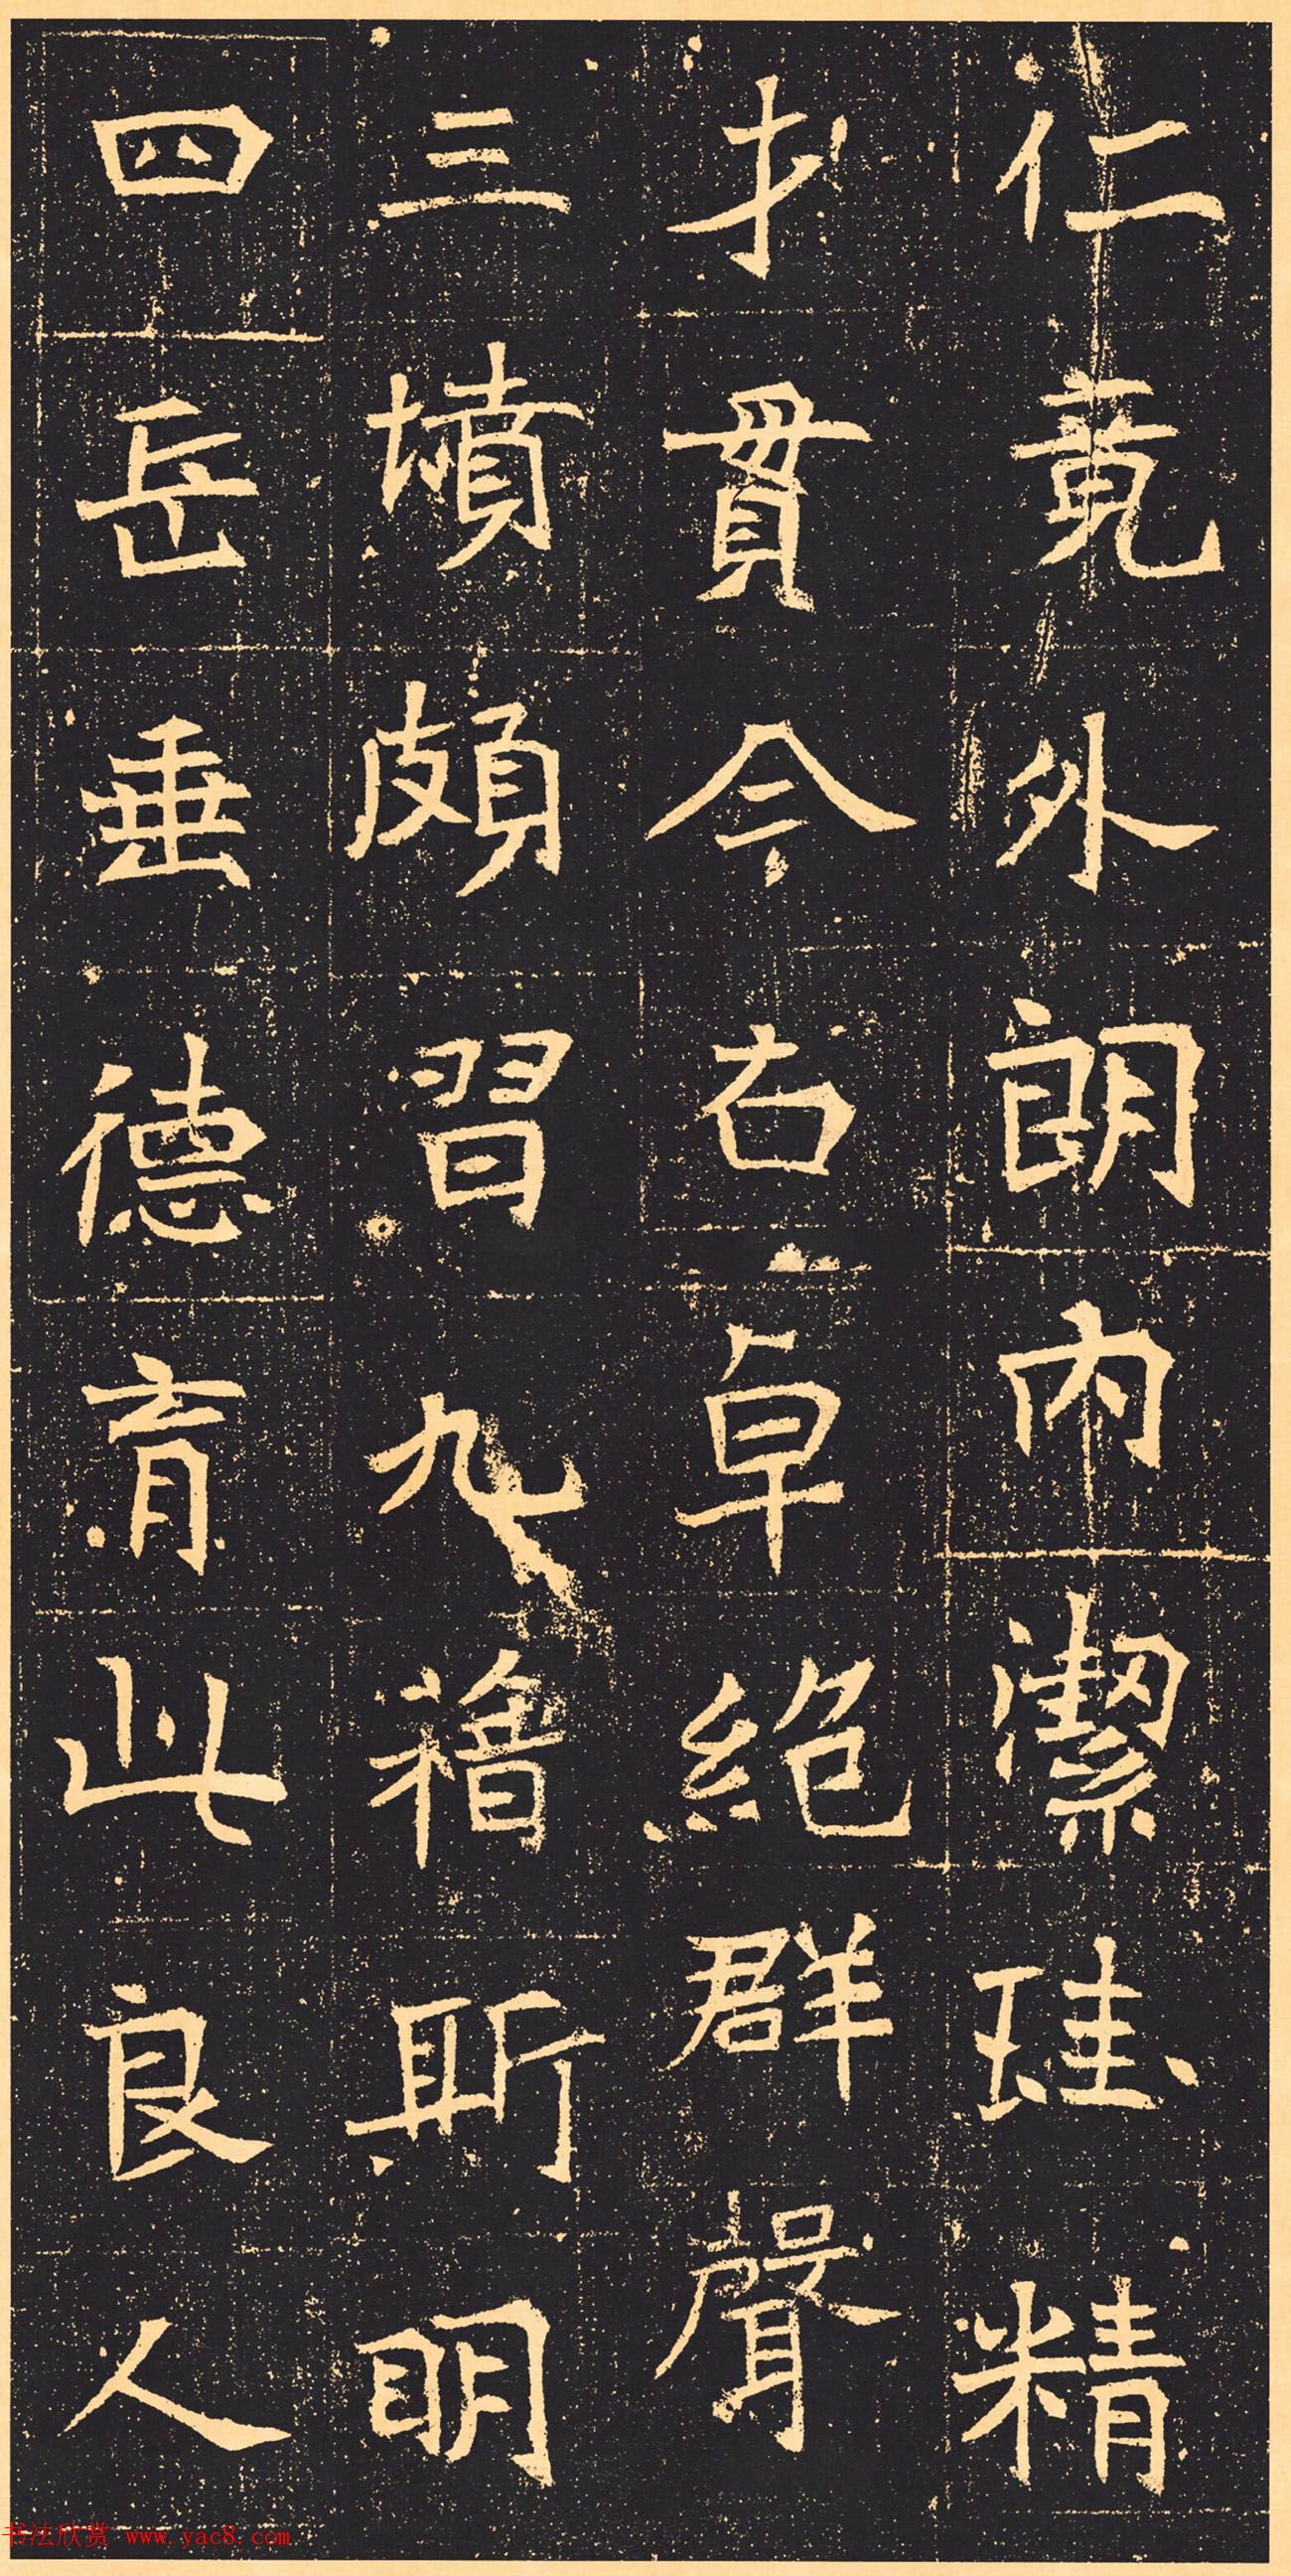 仁竟外朗内潔珪精
才貫今右卓絶群聲
三墳頗習九籍斯明
四岳垂德育此良人
书法欣赏 www.yac8.com